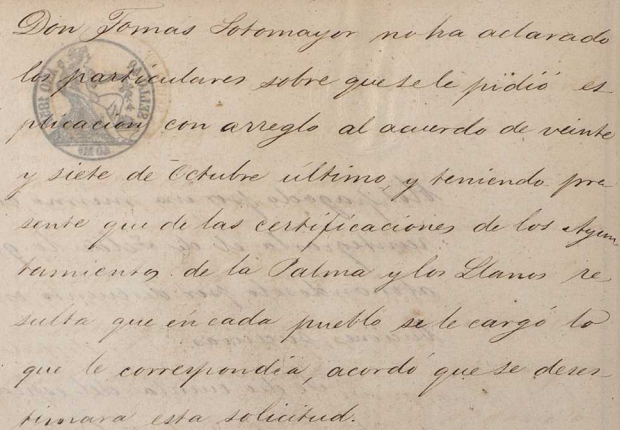 Don Tomas Sotomayor no ha aclarado
los particulares sobre que se le pidió es
plicacion con arreglo al acuerdo de veinte
y siete de Octubre último, y teniendo pre
sente que de las certificaciones de los Ayun
tamientos de la Palma y los Llanos re
sulta que en cada pueblo se le cargó lo
que le correspondia, acordó que se deses
timara esta solicitud.